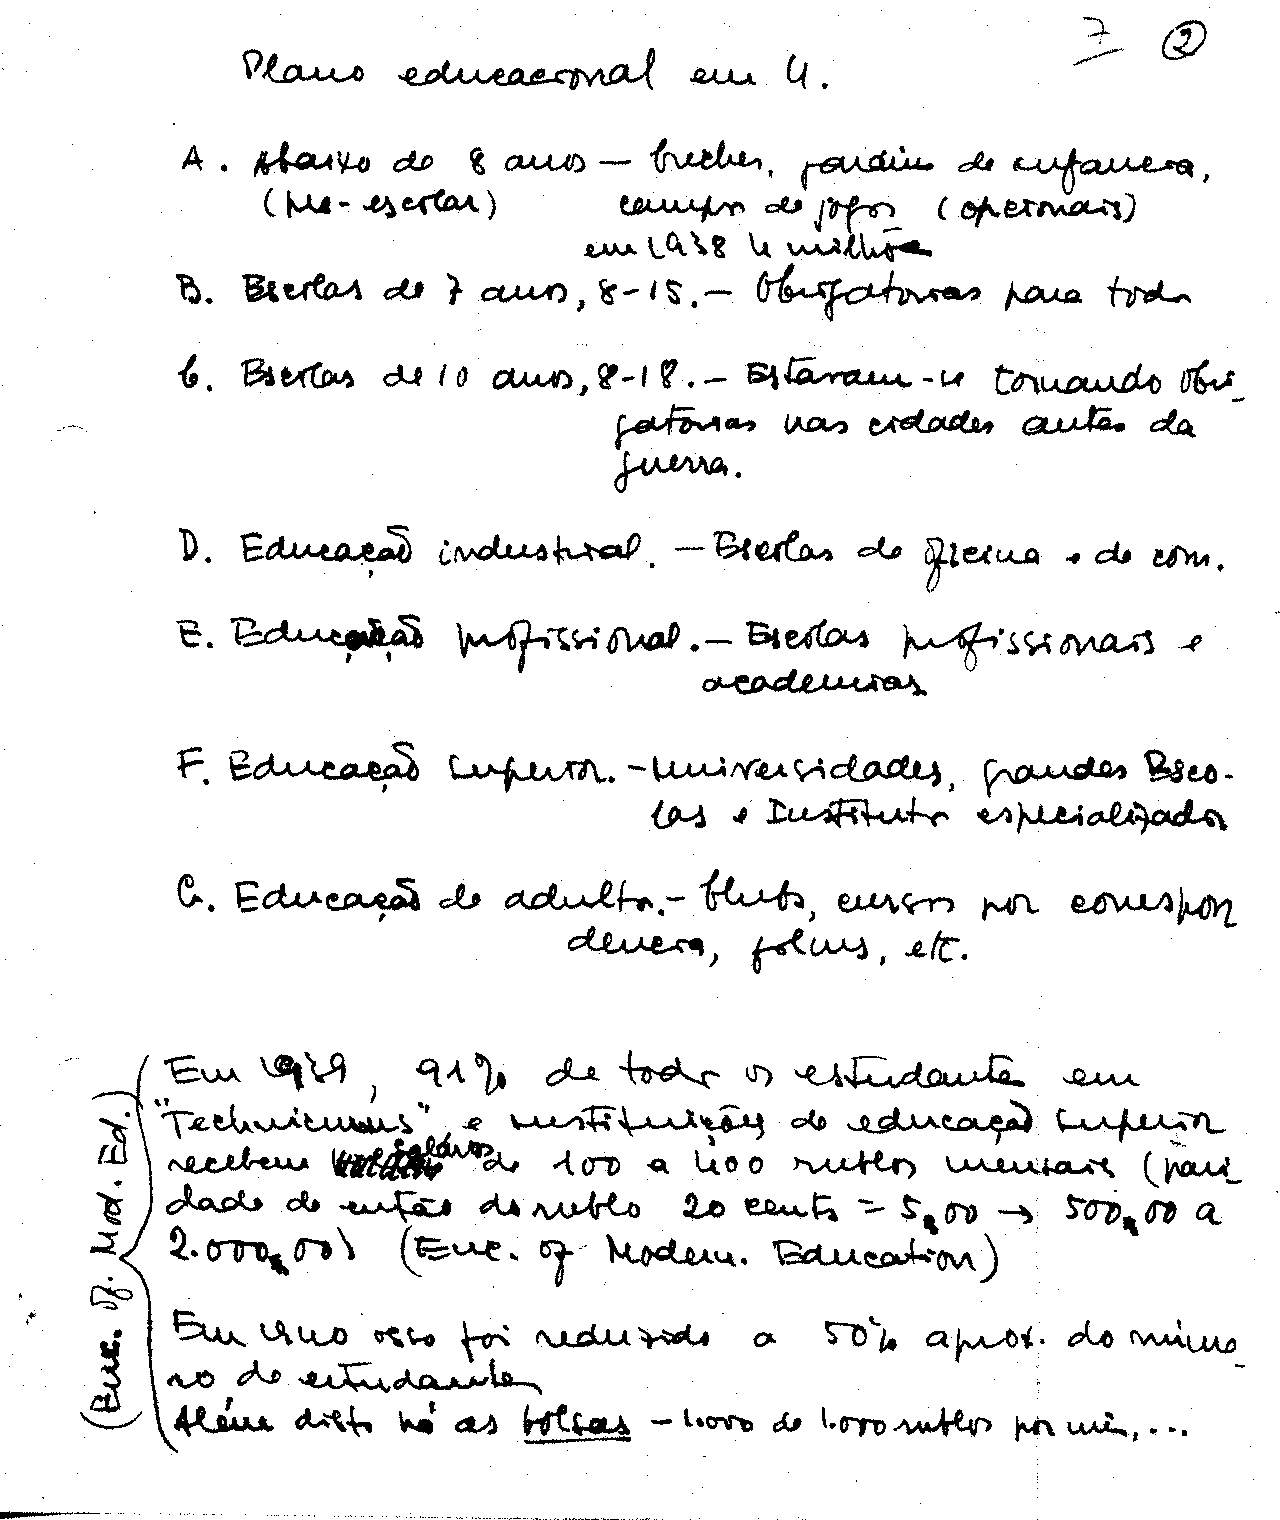 7 2
Plano educacional em U.
A. Abaixo de 8 anos — creches, jardins de infancia,
(pre-escolar) campos de jogos (opcionais)
em 1938 4 milhões
B. Escolas de 7 anos, 8-15. — Obrigatorias para todos
C. Escolas de 10 anos, 8-18. — Estavam-se tornando obri-
gatorias nas cidades antes da
guerra.
D. Educação industrial. — Escolas de oficina e de com.
E. Educação profissional. — Escolas profissionais e
academias
F. Educação superior. — Universidades, grandes Esco-
las e Institutos especializados
G. Educação de adultos. — Clubs, cursos por correspon
dencia, folius, etc.
Em 1939, 91% de todos os estudantes em
"Technicums" e instituições de educação superior
recebem salários de 100 a 400 rublos mensais (pari-
dade de então do rublo 20 cents = 5,00 → 500,00 a
2.000,00) (Enc. of Modern. Education)
Em 1940 isso foi reduzido a 50% aprox. do núme-
ro de estudantes
Além disto há as bolsas — 1.000 de 1.000 rublos por mês, ...
(Enc. of. Mod. Ed.)